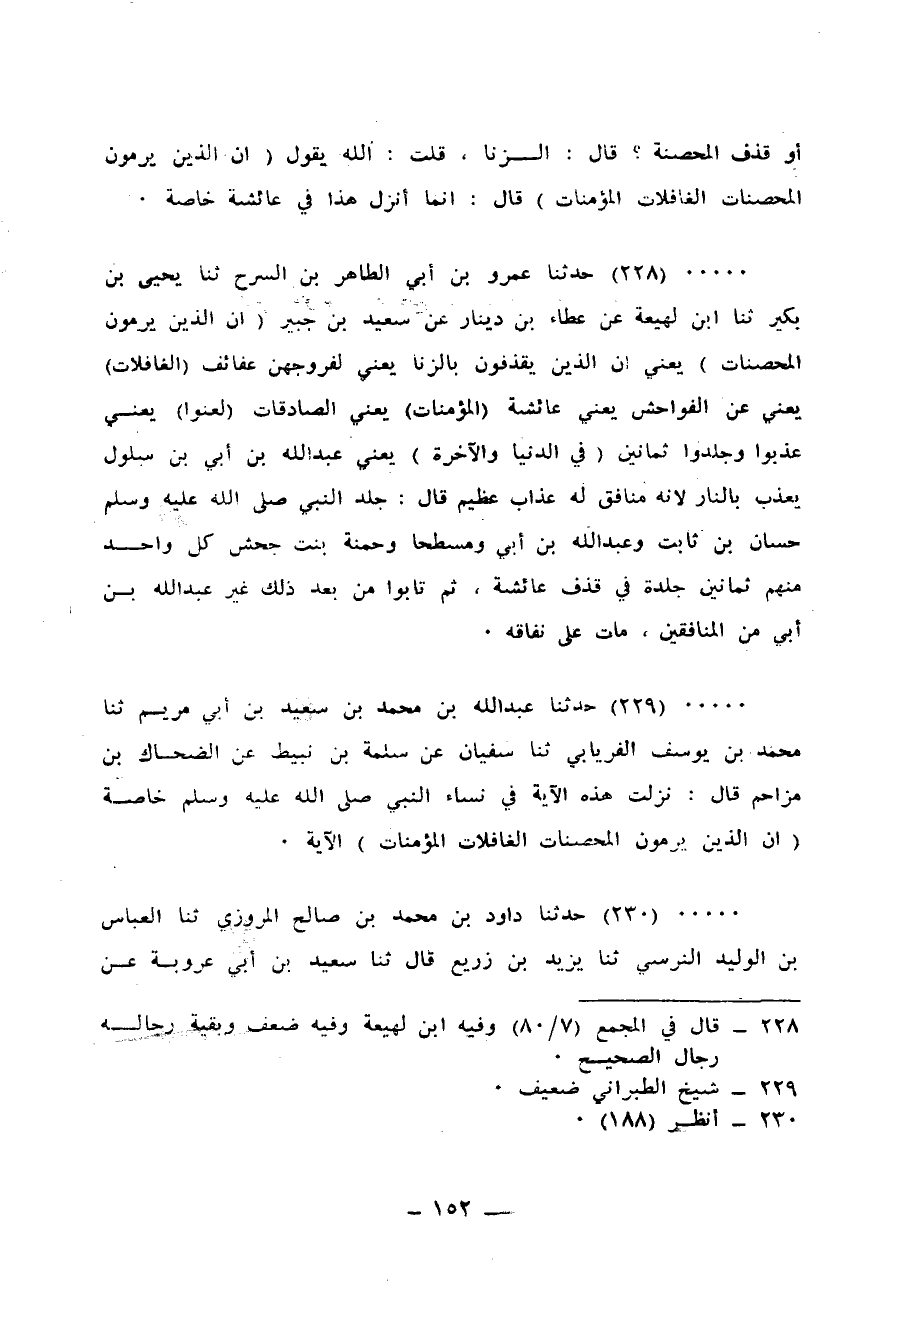 أو قذف المحصنة ؟ قال : الـــزنا ، قلت : ألله يقول ( ان الذين يرمون
المحصنات الغافلات المؤمنات ) قال : انما أنزل هذا في عائشة خاصة ٠
٠٠٠٠٠ (٢٢٨) حدثنا عمرو بن أبي الطاهر بن السرح ثنا يحيى بن
بكير ثنا ابن لهيعة عن عطاء بن دينار عن سعيد بن جبير ( ان الذين يرمون
المحصنات ) يعني ان الذين يقذفون بالزنا يعني لفروجهن عفائف (الغافلات)
يعني عن الفواحش يعني عائشة (المؤمنات) يعني الصادقات (لعنوا) يعنــي
عذبوا وجلدوا ثمانين ( في الدنيا والآخرة ) يعني عبدالله بن أبي بن سلول
يعذب بالنار لانه منافق له عذاب عظيم قال : جلد النبي صلى الله عليه وسلم
حسان بن ثابت وعبدالله بن أبي ومسطحا وحمنة بنت جحش كل واحـــد
منهم ثمانين جلدة في قذف عائشة ، ثم تابوا من بعد ذلك غير عبدالله بــن
أبي من المنافقين ، مات على نفاقه ٠
٠٠٠٠٠ (٢٢٩) حدثنا عبدالله بن محمد بن سعيد بن أبي مريــم ثنا
محمد بن يوسف الفريابي ثنا سفيان عن سلمة بن نبيط عن الضحــاك بن
مزاحم قال : نزلت هذه الآية في نساء النبي صلى الله عليه وسلم خاصــة
( ان الذين يرمون المحصنات الغافلات المؤمنات ) الآية ٠
٠٠٠٠٠ (٢٣٠) حدثنا داود بن محمد بن صالح المروزي ثنا العباس
بن الوليد النرسي ثنا يزيد بن زريع قال ثنا سعيد بن أبي عروبــة عــن
٢٢٨ ـ قال في المجمع (٨٠/٧) وفيه ابن لهيعة وفيه ضعف وبقية رجالــه
رجال الصحيــح ٠
٢٢٩ ـ شيخ الطبراني ضعيف ٠
٢٣٠ ـ أنظــر (١٨٨) ٠
ـ ١٥٢ ـ